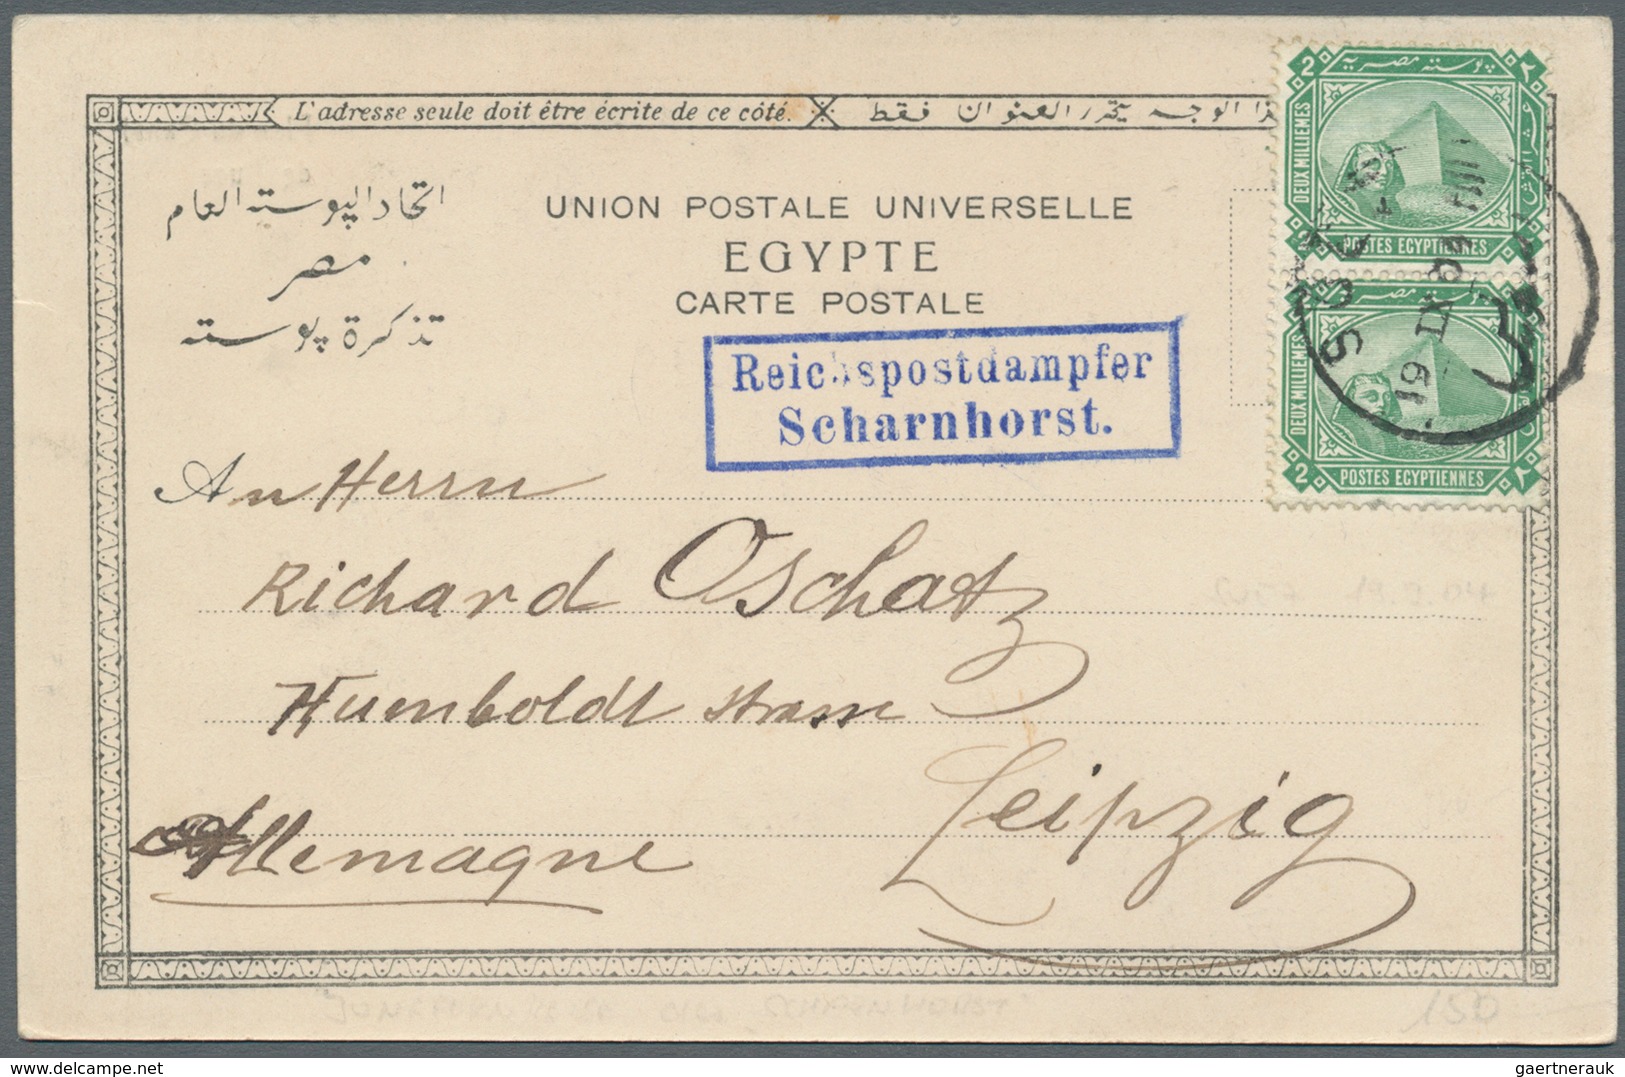 L'adresse seule doit être écrite de ce côté. هذا الوجه يتحرر العنوان فقط
اتحاد البوسته العام
مصر
تذكرة بوسته
UNION POSTALE UNIVERSELLE
EGYPTE
CARTE POSTALE
2 بوسته مصرية ٢
DEUX MILLIEMES
POSTES EGYPTIENNES
2
DEUX MILLIEMES
2 POSTES EGYPTIENNES ٢
SUEZ
19 IX 04
Reichspostdampfer
Scharnhorst.
An Herrn
Richard Oschatz
Humboldt strasse
Leipzig
Allemagne
SCHARNHORST
150
gaertnerauk